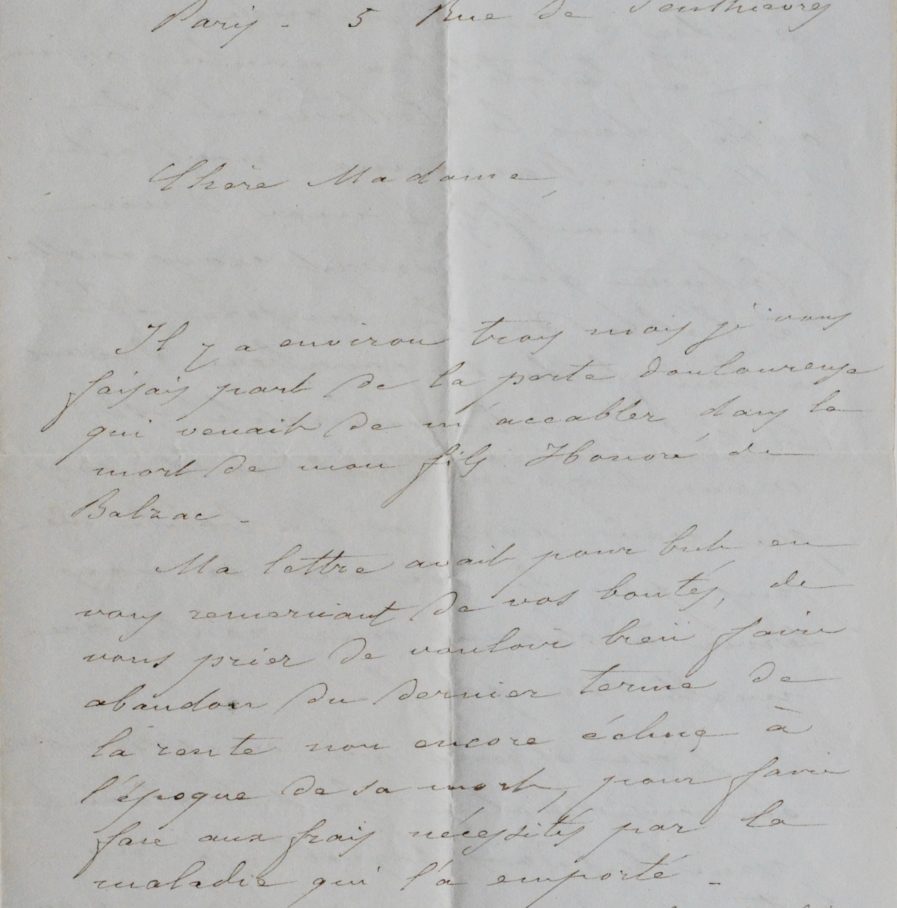 Paris - 5 Rue de Penthièvre
Chère Madame,
Il y a environ trois mois je vous
faisais part de la perte douloureuse
qui venait de m'accabler dans la
mort de mon fils Honoré de
Balzac -
Ma lettre avait pour but en
vous remerciant de vos bontés, de
vous prier de vouloir bien faire
abandon du dernier terme de
la rente non encore échue à
l'époque de sa mort, pour faire
face aux frais nécessités par la
maladie qui l'a emporté -